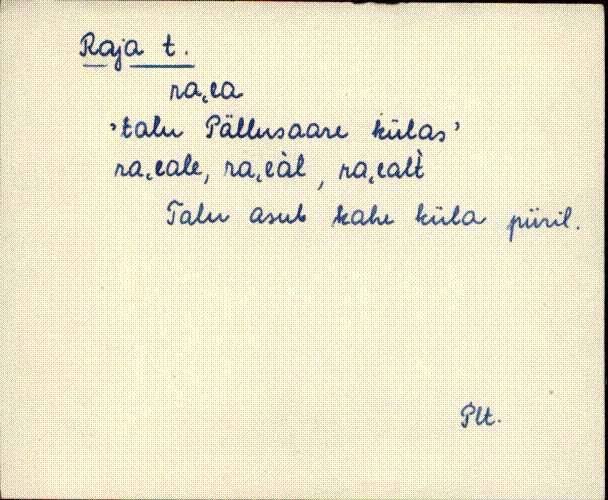 Raja t.
ra˛ea
'talu Pällusaare külas'
ra˛eale, ra˛eàl, ra˛ealt̀
Talu asub kahe küla piiril.
Plt.